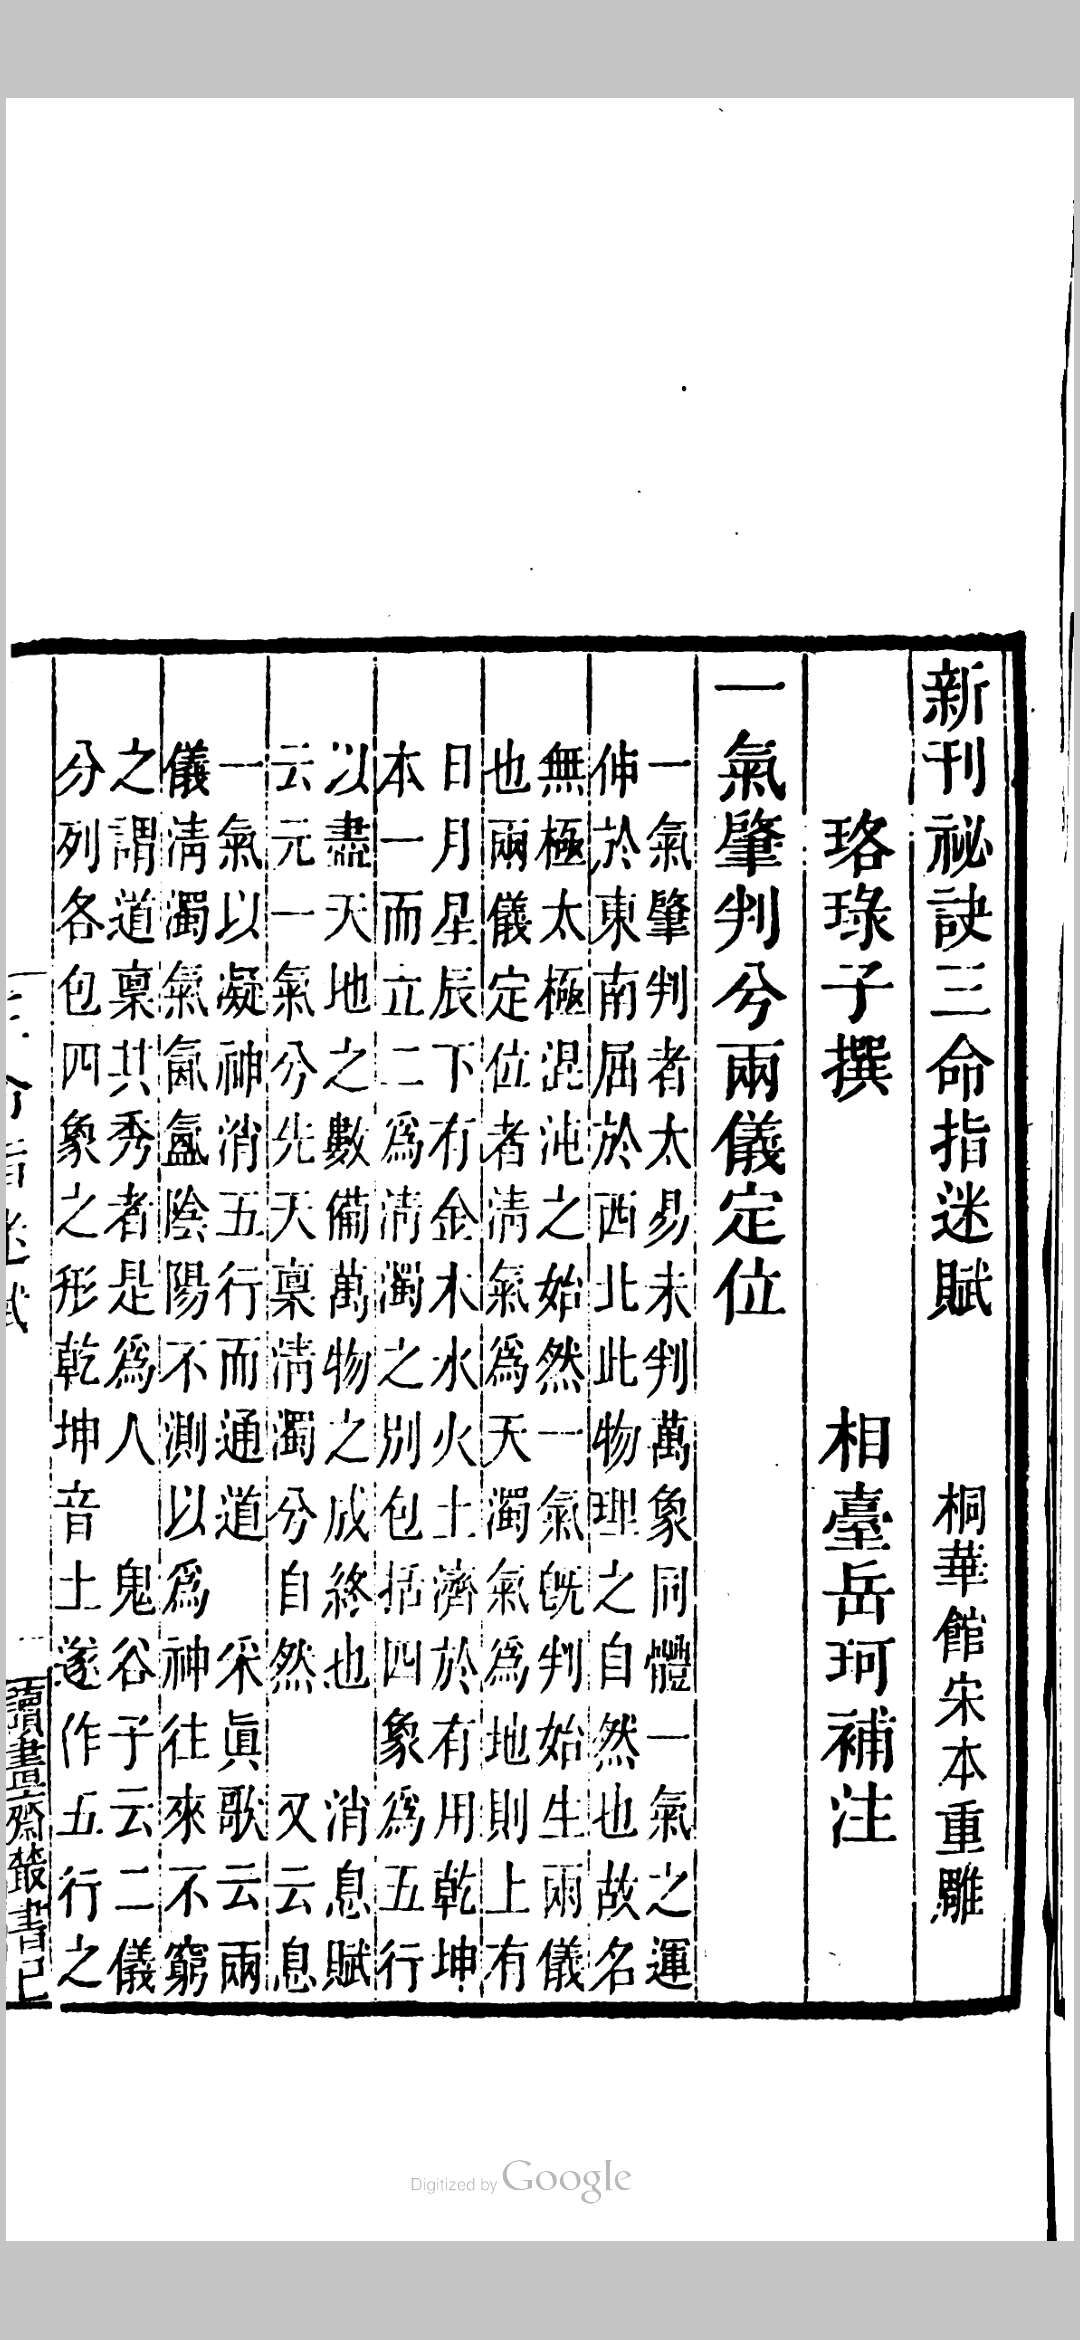 新刊祕訣三命指迷賦　桐華館宋本重雕
珞琭子撰　相臺岳珂補注
一氣肇判兮兩儀定位
一氣肇判者太易未判萬象同體一氣之運
伸於東南屈於西北此物理之自然也故名
無極太極混沌之始然一氣旣判始生兩儀
也兩儀定位者淸氣爲天濁氣爲地則上有
日月星辰下有金木水火土濟於有用乾坤
本一而立二爲淸濁之別包括四象爲五行
以盡天地之數備萬物之成終也　消息賦
云元一氣兮先天稟淸濁兮自然　又云息
一氣以凝神消五行而通道　采眞歌云兩
儀淸濁氣氤氳陰陽不測以爲神往來不窮
之謂道稟其秀者是爲人　鬼谷子云二儀
分列各包四象之形乾坤音土遂作五行之
三命指迷賦
一
讀畫齋叢書己
Digitized by Google